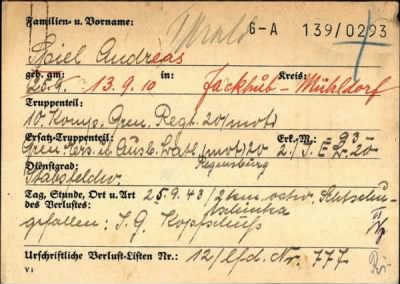 Familien- u. Vorname: G-A 139/0293
Spiel Andreas
geb. am: in: Kreis:
13.9.10 Jackhub - Mühldorf
Truppenteil:
10. Komp. Gren. Regt. 20 (mot)
Ersatz-Truppenteil: Erk.-Nr.: -93-
Gren. Ers. u. Ausb. Batl. (mot) 20
Regensburg
Dienstgrad:
Stabsfeldw.
Tag, Stunde, Ort u. Art 25.9.43 / 2 km ostw.
des Verlustes:
gefallen: I. G. Kopfschuß
Urschriftliche Verlust-Listen Nr.: 12/lfd. Nr. 777
V 1